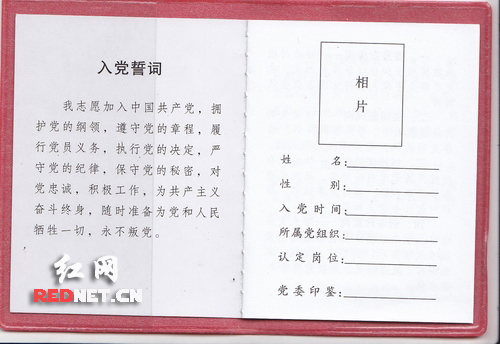 入党誓词
我志愿加入中国共产党，拥
护党的纲领，遵守党的章程，履
行党员义务，执行党的决定，严
守党的纪律，保守党的秘密，对
党忠诚，积极工作，为共产主义
奋斗终身，随时准备为党和人民
牺牲一切，永不叛党。
红网
REDNET.CN
相
片
姓 名：
性 别：
入党时间：
所属党组织：
认定岗位：
党委印鉴：